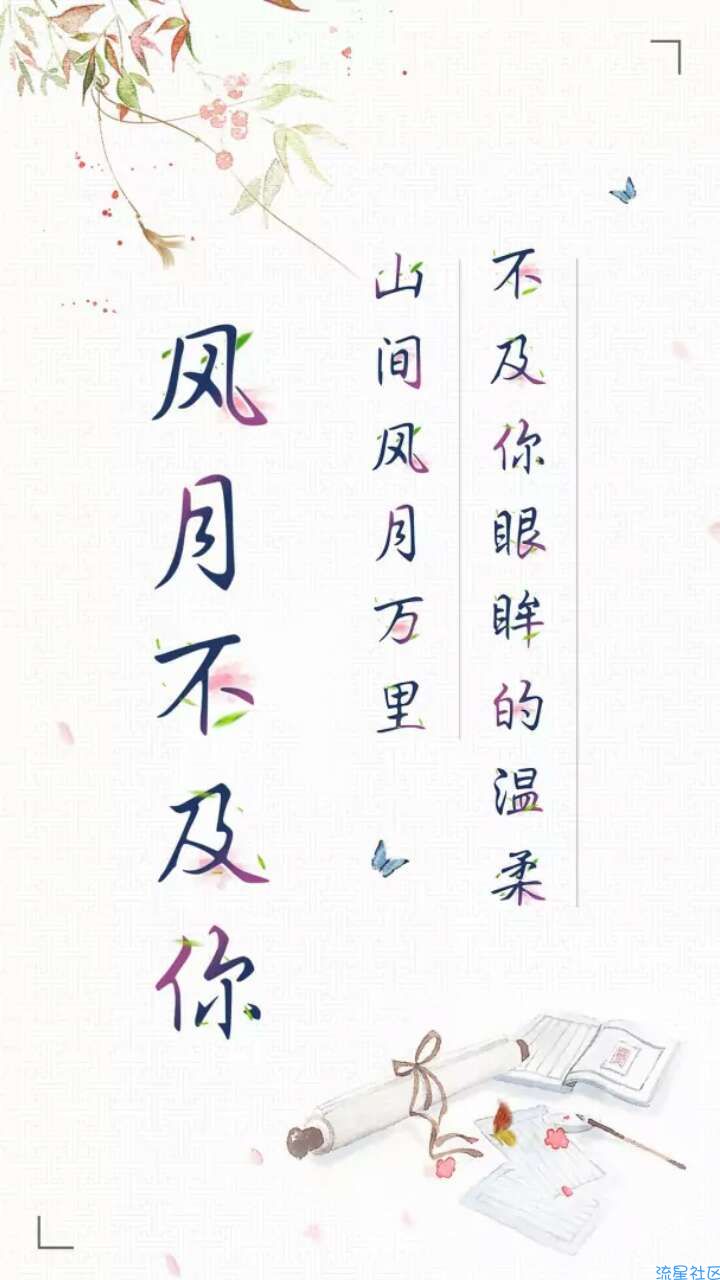 风月不及你
山间风月万里
不及你眼眸的温柔
流星社区